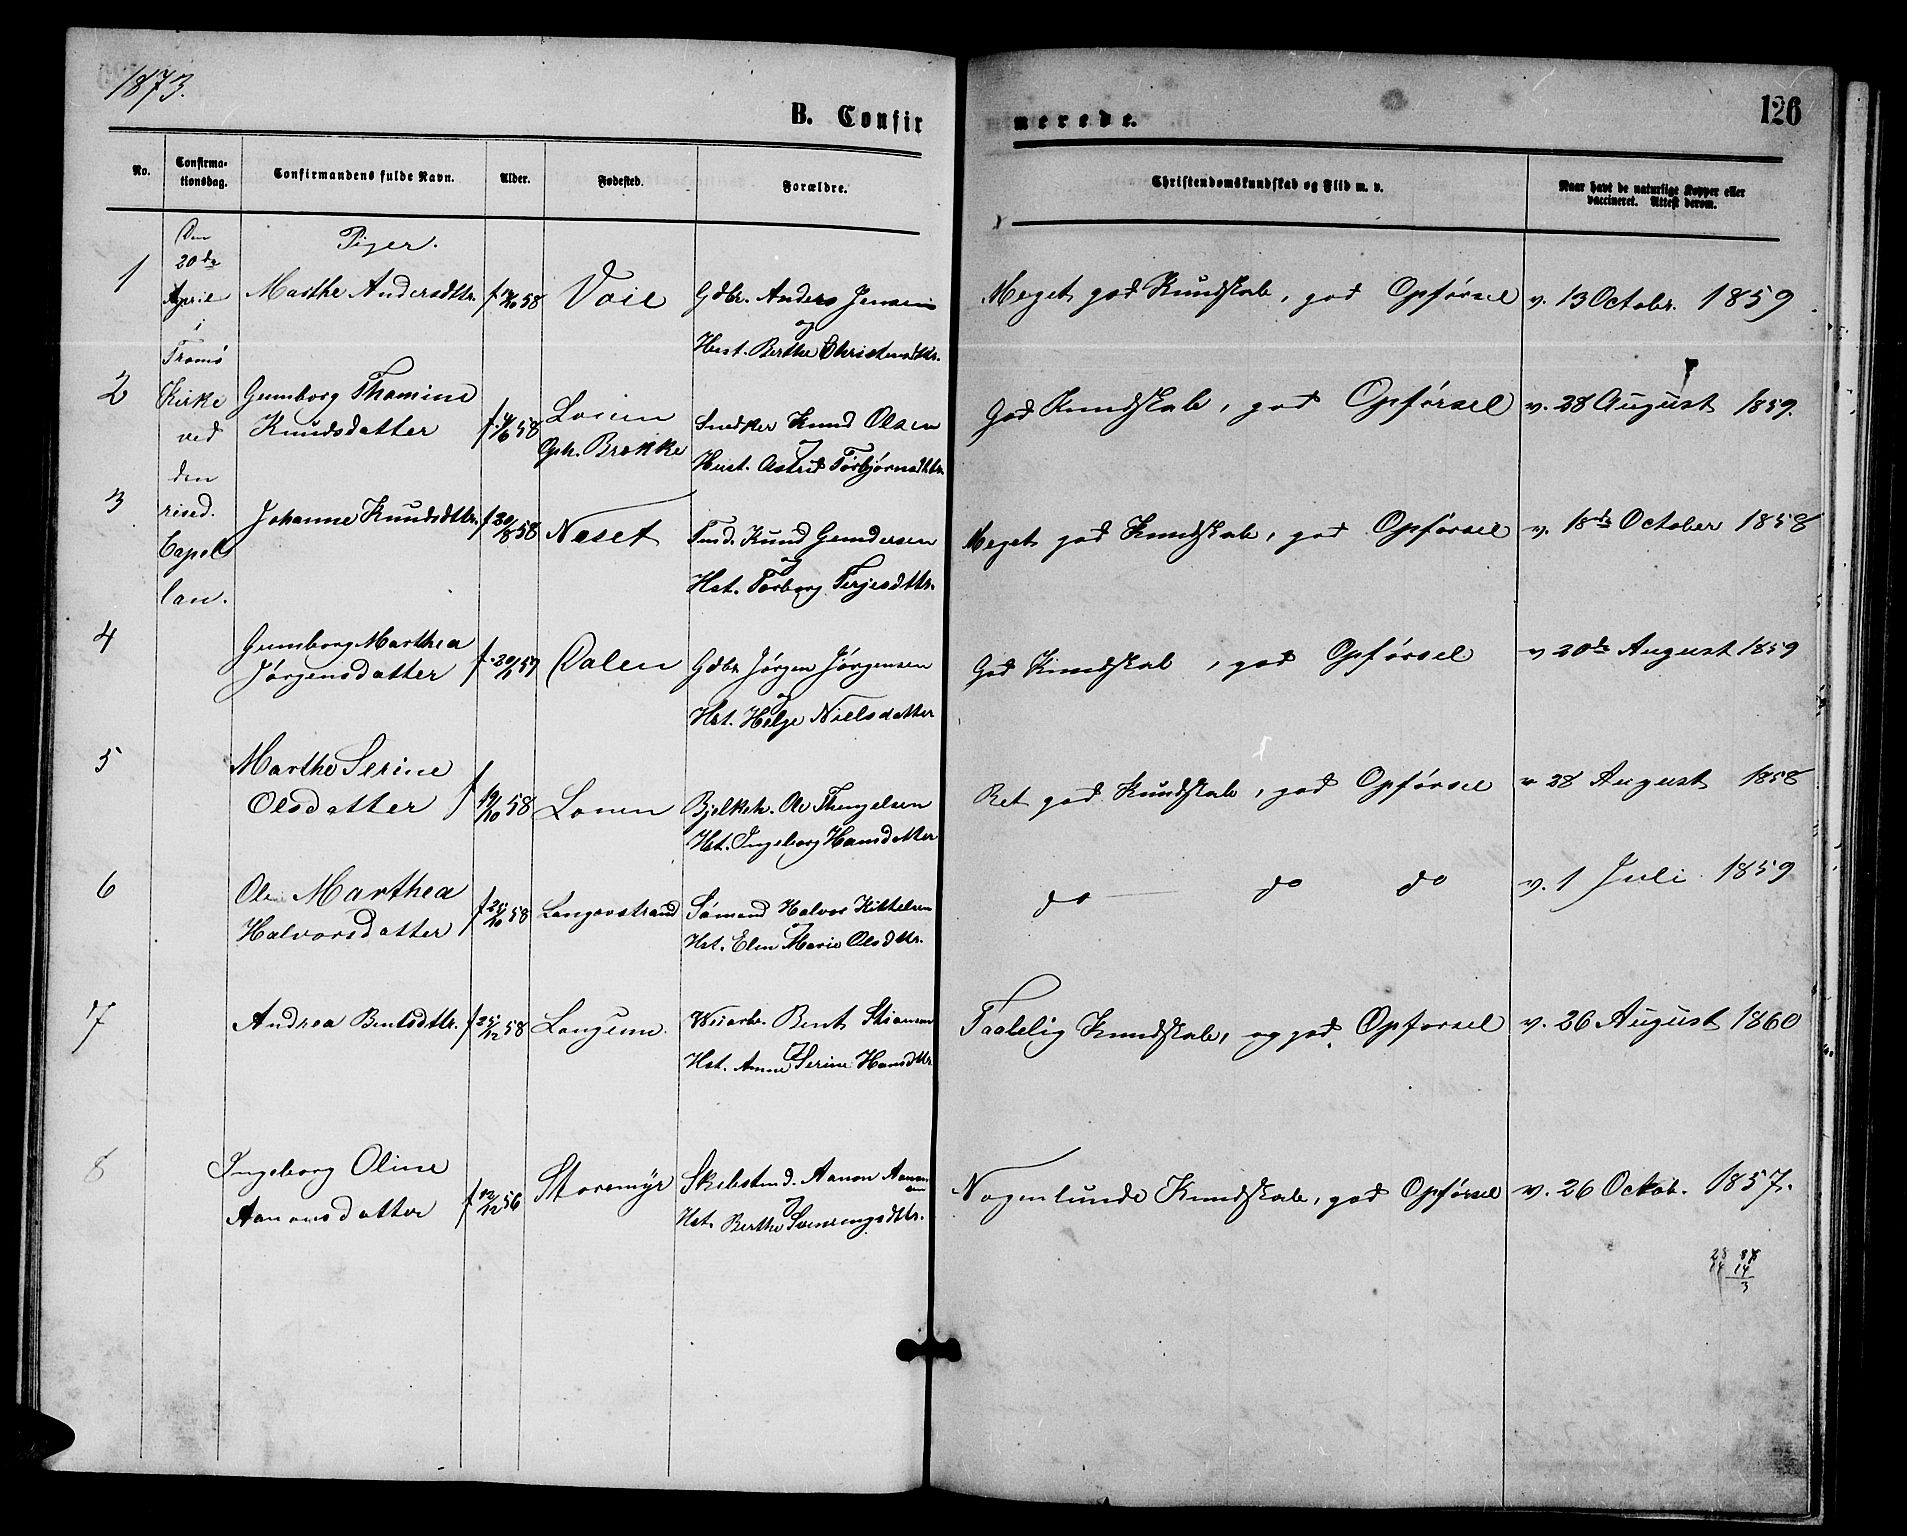 1873.
B. Confir
merede.
126
No.
Confirma-
tionsdag.
Confirmandens fulde Navn.
Alder.
Fødested.
Forældre.
Christendomskundskab og Flid m. v.
Naar havt de naturlige Kopper eller
vaccineret. Attest derom.
Den
20de
April
i
Tromø
Kirke
ved
den
resid.
Capel
lan.
Piger.
1 Marthe Andersdttr. 58 Voie Gdbr. Anders Jensen
og
Hust. Berthe Christensdttr.
Meget god Kundskab, god Opførsel v. 13 Octobr. 1859
2 Gunnborg Thomine
Knudsdatter 58 Loven
Oph. Brekke
Snedker Knud Olsen
Hust. Astrid Torbjørnsdttr.
God Kundskab, god Opførsel v. 28 August 1859.
3 Johanne Knudsdttr. f 20/8 58 Neset Tmd. Knud Gundersen
og
Hst. Torborg Terjesdttr.
Meget god Kundskab, god Opførsel v. 18de October 1858
4 Gunnborg Marthea
Jørgensdatter Dalen Gdbr Jørgen Jørgensen
og
Hst. Helje Nielsdatter
God Kundskab, god Opførsel v 20de August 1859
5 Marthe Serine
Olsdatter f 19/10 58 Lonen Ole
Hst. Ingeborg Hansdatter
Ret god Kundskab, god Opførsel v 28 August 1858
6 Marthea
Halvorsdatter f 25/10 58 Langøostrand Sømand Halvor Kittelsen
og
Hst. Elen Marie Olsdttr.
do do do v. 1 Juli 1859
7 Andrea Bentsdttr. f 25/12 58 Longum Veiarb. Bent
Hst. Anne Serine Hansdttr
Taalelig Kundskab, og god Opførsel v. 26 August 1860
8 Ingeborg Oline
Aanonsdatter f 12/12 56 Storemyr Skibstmd. Aanon
Hst. Berthe
Nogenlunde Kundskab, god Opførsel v. 26 Octob. 1857.
14
3